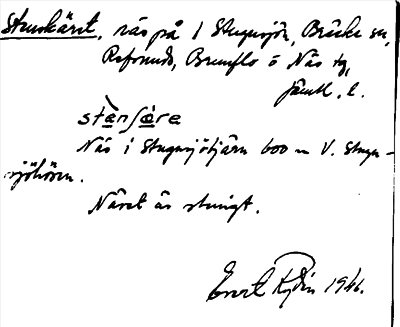 Stenskäret, näs på i Stugusjön, Bräcke sn,
Refsunds, Brunflo o Näs tg,
Jämtl. l.
Näs i Stugusjötjärn 600 m V. Stugu-
sjöhösen.
Näset är stenigt.
Evert Rydin 1946.